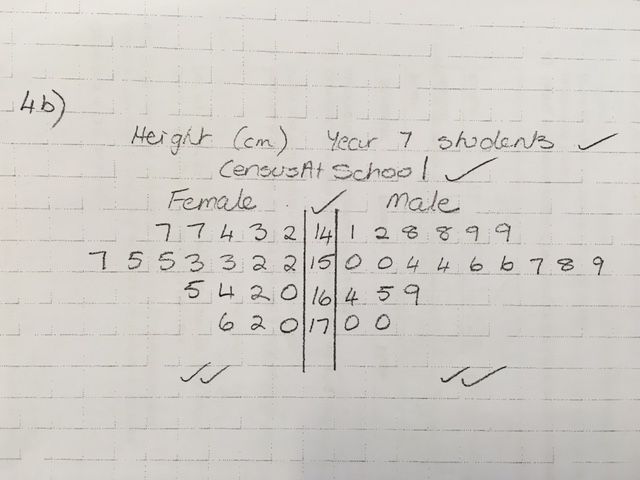 4b)
Height (cm) Year 7 students ✓
CensusAtSchool ✓
Female ✓ Male
7 7 4 3 2 | 14 | 1 2 8 8 9 9
7 5 5 3 3 2 2 | 15 | 0 0 4 4 6 6 7 8 9
5 4 2 0 | 16 | 4 5 9
6 2 0 | 17 | 0 0
✓✓ ✓✓